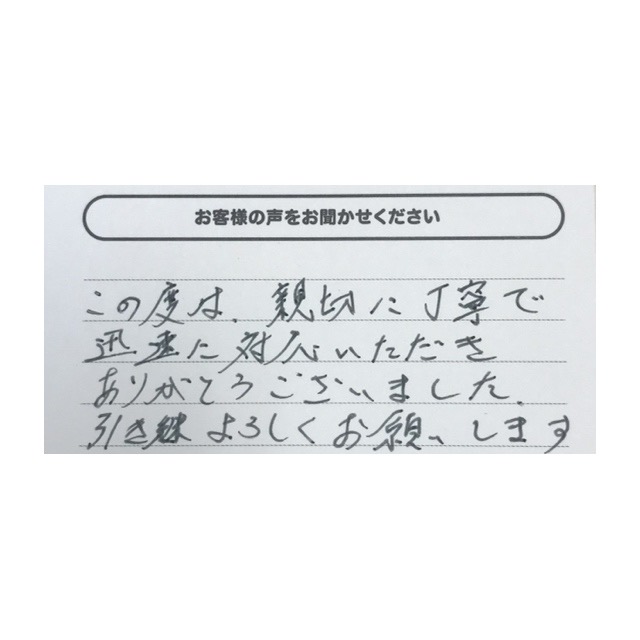 お客様の声をお聞かせください
この度は、親切に丁寧で
迅速に対応いただき
ありがとうございました.
引き継よろしくお願いします